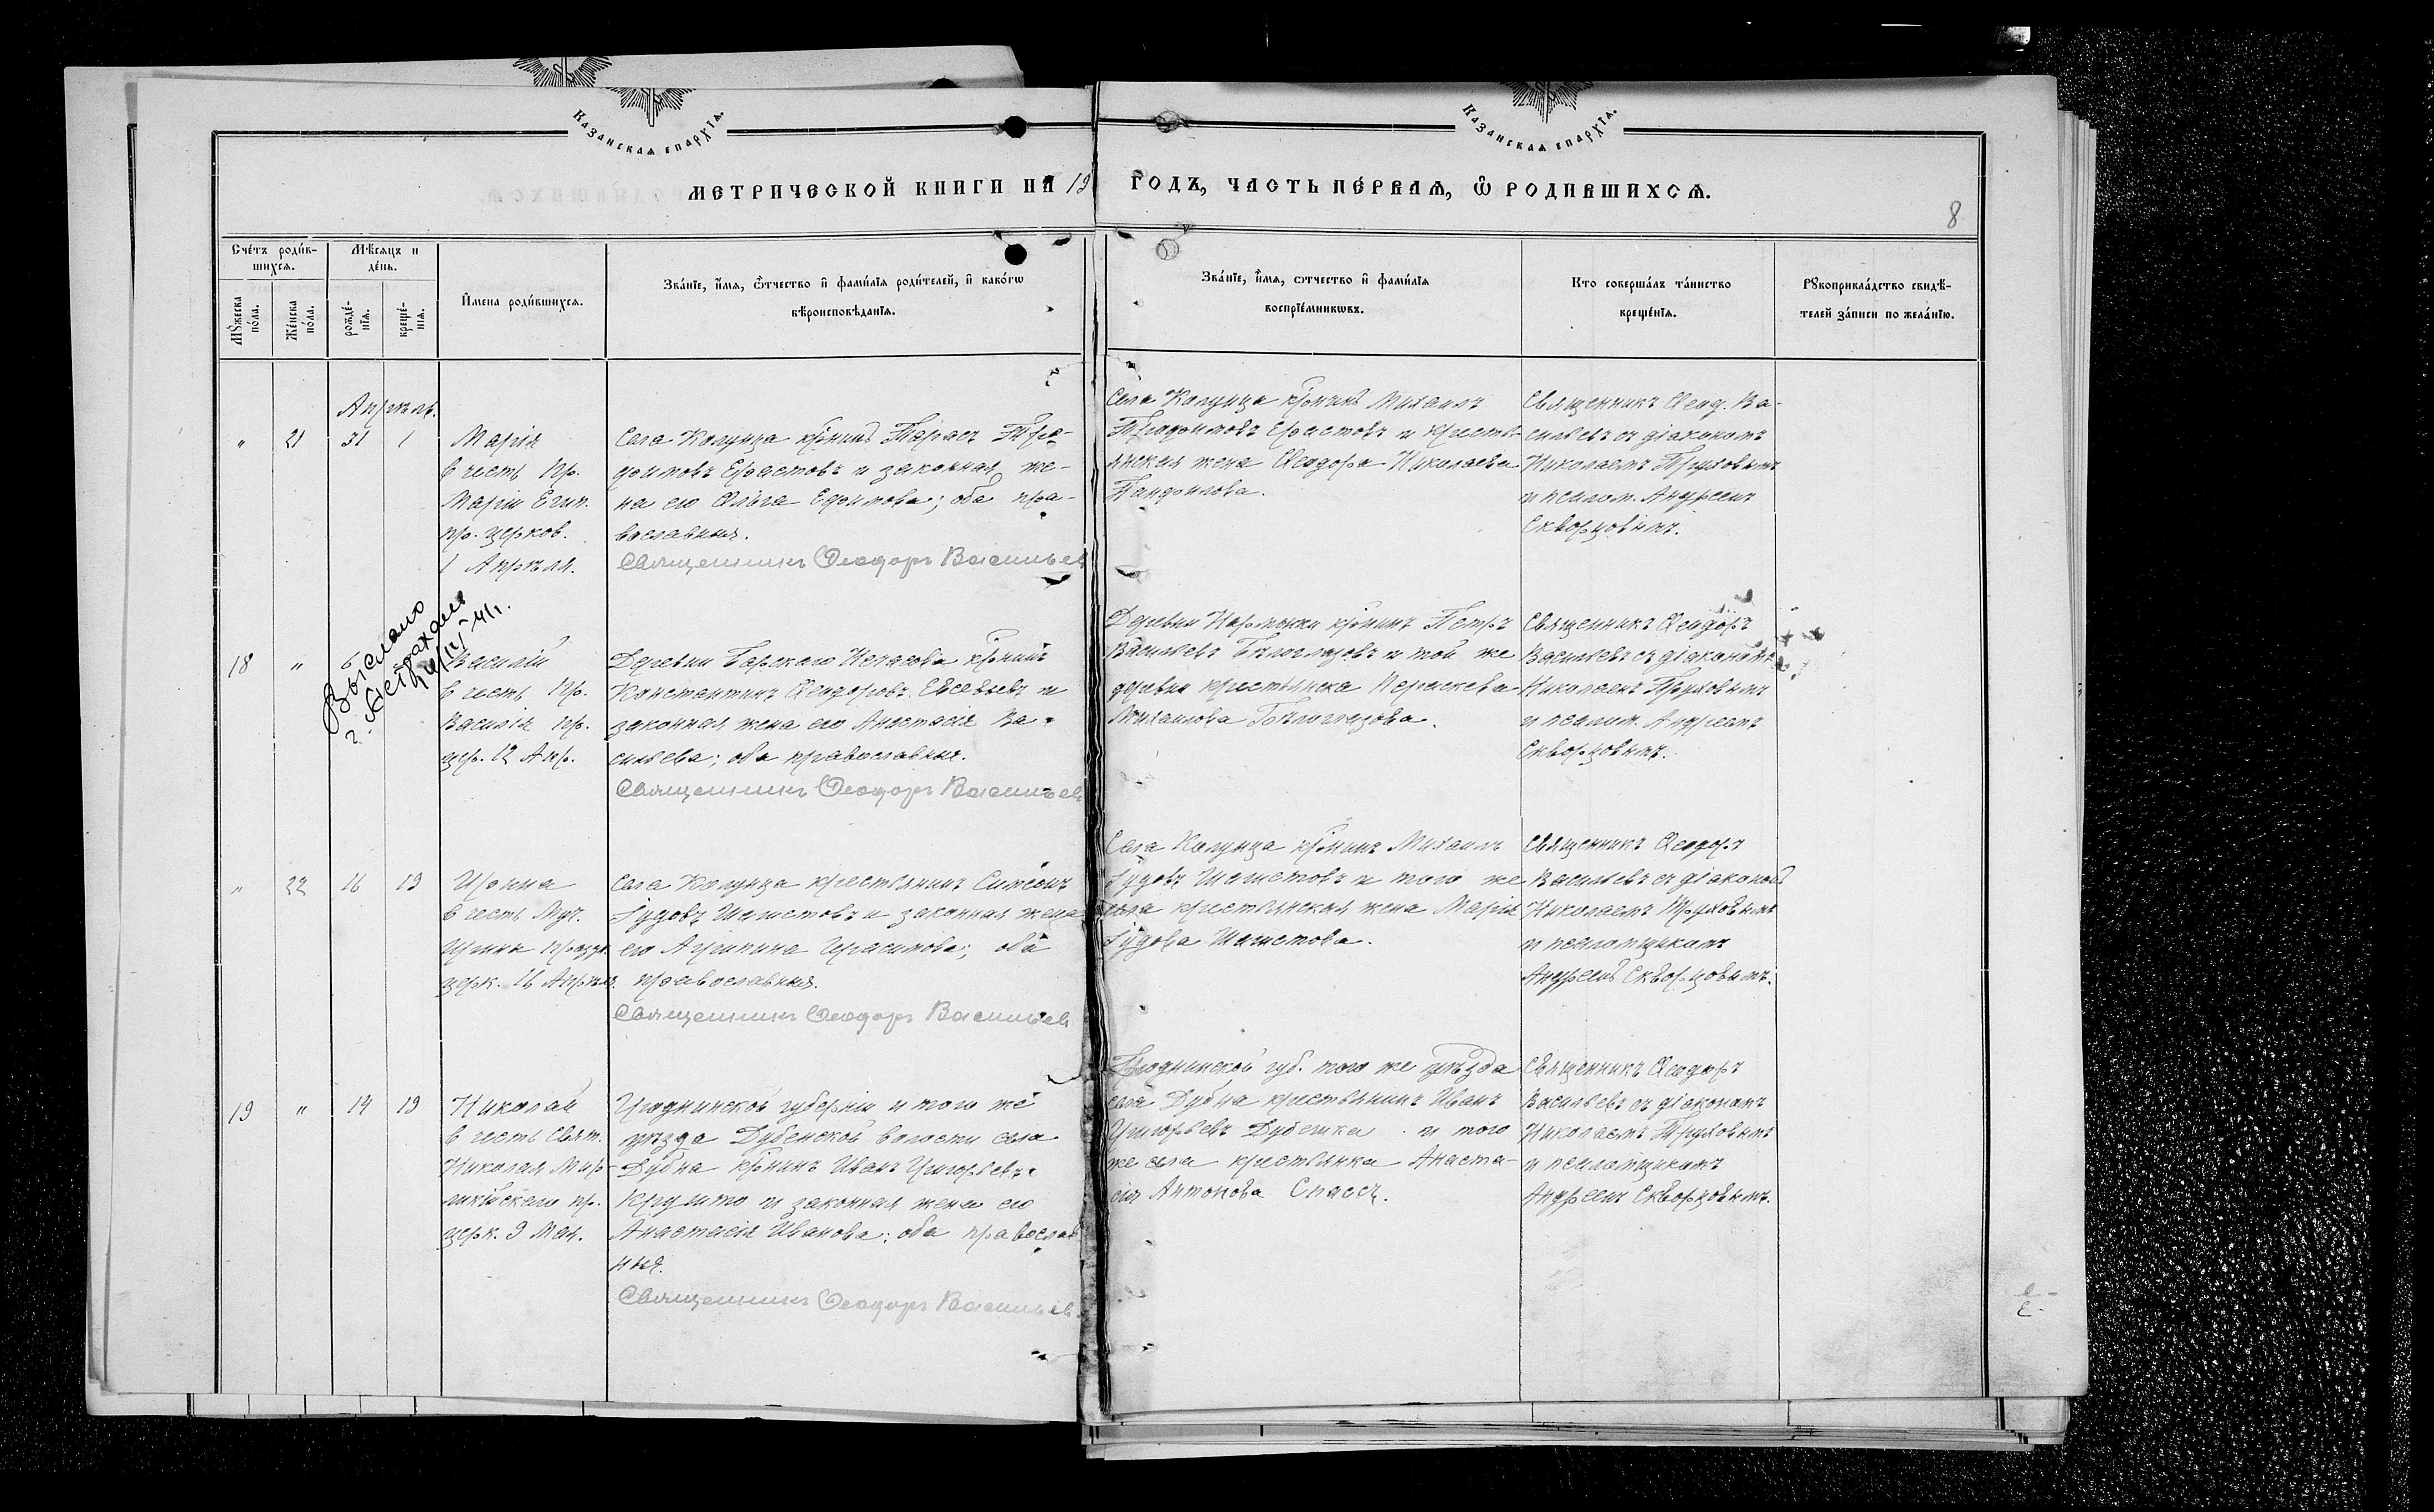 КАЗАНСКАЯ ЕПАРХІЯ.
КАЗАНСКАЯ ЕПАРХІЯ.
МЕТРИЧЕСКОЙ КНИГИ НА 19
ГОДЪ, ЧАСТЬ ПЕРВАЯ, Ѡ РОДИВШИХСЯ.
8
Счетъ родив-
шихся.
Мѣсяцъ и
день.
Мꙋжеска
пола.
Женска
пола.
рожде-
нія.
креще-
нія.
Имена родившихся.
Званіе, имя, ѿчество и фамилія родителей, и какогѡ
вѣроисповѣданія.
Званіе, имя, ѿчество и фамилія
воспріемникѡвъ.
Кто совершалъ таинство
крещенія.
Рꙋкоприкладство свидѣ-
телей записи по желанію.
Апрѣль.
" 21 31 1
Марія
въ честь Пр.
Маріи Егип.
пр. церков.
1 Апрѣля.
Села Колунца кр-нинъ Тарасъ Тро-
фимовъ Ерастовъ и законная же-
на его Ольга Ефимова; оба пра-
вославныя.
Священникъ Ѳеодоръ Васильев
Села Колунца кр-нинъ Михаилъ
Трофимовъ Ерастовъ и кресть-
янская жена Ѳеодора Николаева
Панфилова.
Священникъ Ѳеод. Ва-
сильевъ съ діакономъ
Николаемъ Труховымъ
и псалом. Андреемъ
Скворцовымъ.
Выслано
г. Астрахань
18 " 6
Василій
въ честь Пр.
Василія пр.
цер. 12 Апр.
Деревни Кр-нинъ
Константинъ Ѳеодоровъ Евсевьевъ и
законная жена его Анастасія Ва-
сильева; оба православныя.
Священникъ Ѳеодоръ Васильев
Деревни Нармонки кр-нинъ Петръ
Васильевъ Бѣлоглазовъ и той же
деревни крестьянска Параскева
Михаилова Бѣлоглазова.
Священникъ Ѳеодоръ
Васильевъ съ діакономъ
Николаемъ Труховымъ
и псалом. Андреемъ
Скворцовымъ.
" 22 16 19
Ирина
въ честь Муч.
Ирины празд.
церк. 16 Апрѣля.
Села Колунца крестьянинъ Симеонъ
Іудовъ Шашстовъ и законная жена
его Агрипина Герасимова; оба
православныя.
Священникъ Ѳеодоръ Васильев
Села Колунца кр-нинъ Михаилъ
Іудовъ Шашстовъ и того же
села крестьянская жена Марія
Іудова Шашстова.
Священникъ Ѳеодоръ
Васильевъ съ діаконом
Николаемъ Труховымъ
и псаломщикомъ
Андреемъ Скворцовымъ.
19 " 14 19
Николай
въ честь Свят.
Николая Мир-
ликійскаго пр.
церк. 9 Мая.
Гроднинской губерніи и того же
уѣзда Дубенской волости села
Дубна кр-нинъ Иванъ Григорьевъ
и законная жена его
Анастасія Иванова; оба православ
ныя.
Священникъ Ѳеодоръ Васильев
Гроднинской губ. того же уѣзда
села Дубна крестьянинъ Иванъ
Григорьевъ Дубешка и того
же села крестьянка Анаста-
сія Антонова Спасъ.
Священникъ Ѳеодоръ
Васильевъ съ діакономъ
Николаемъ Труховымъ
и псаломщикомъ
Андреемъ Скворцовымъ.